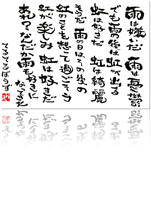 雨は嫌いだ 雨は憂鬱
でも雨の後は 虹が出る
虹は好きだ 虹は綺麗
きっと 雨の日はその後の
虹のでも想って過ごそう
虹が楽しみ 虹は好き
あれ?なんだか雨も好きに
なってきた
てるてるぼうず